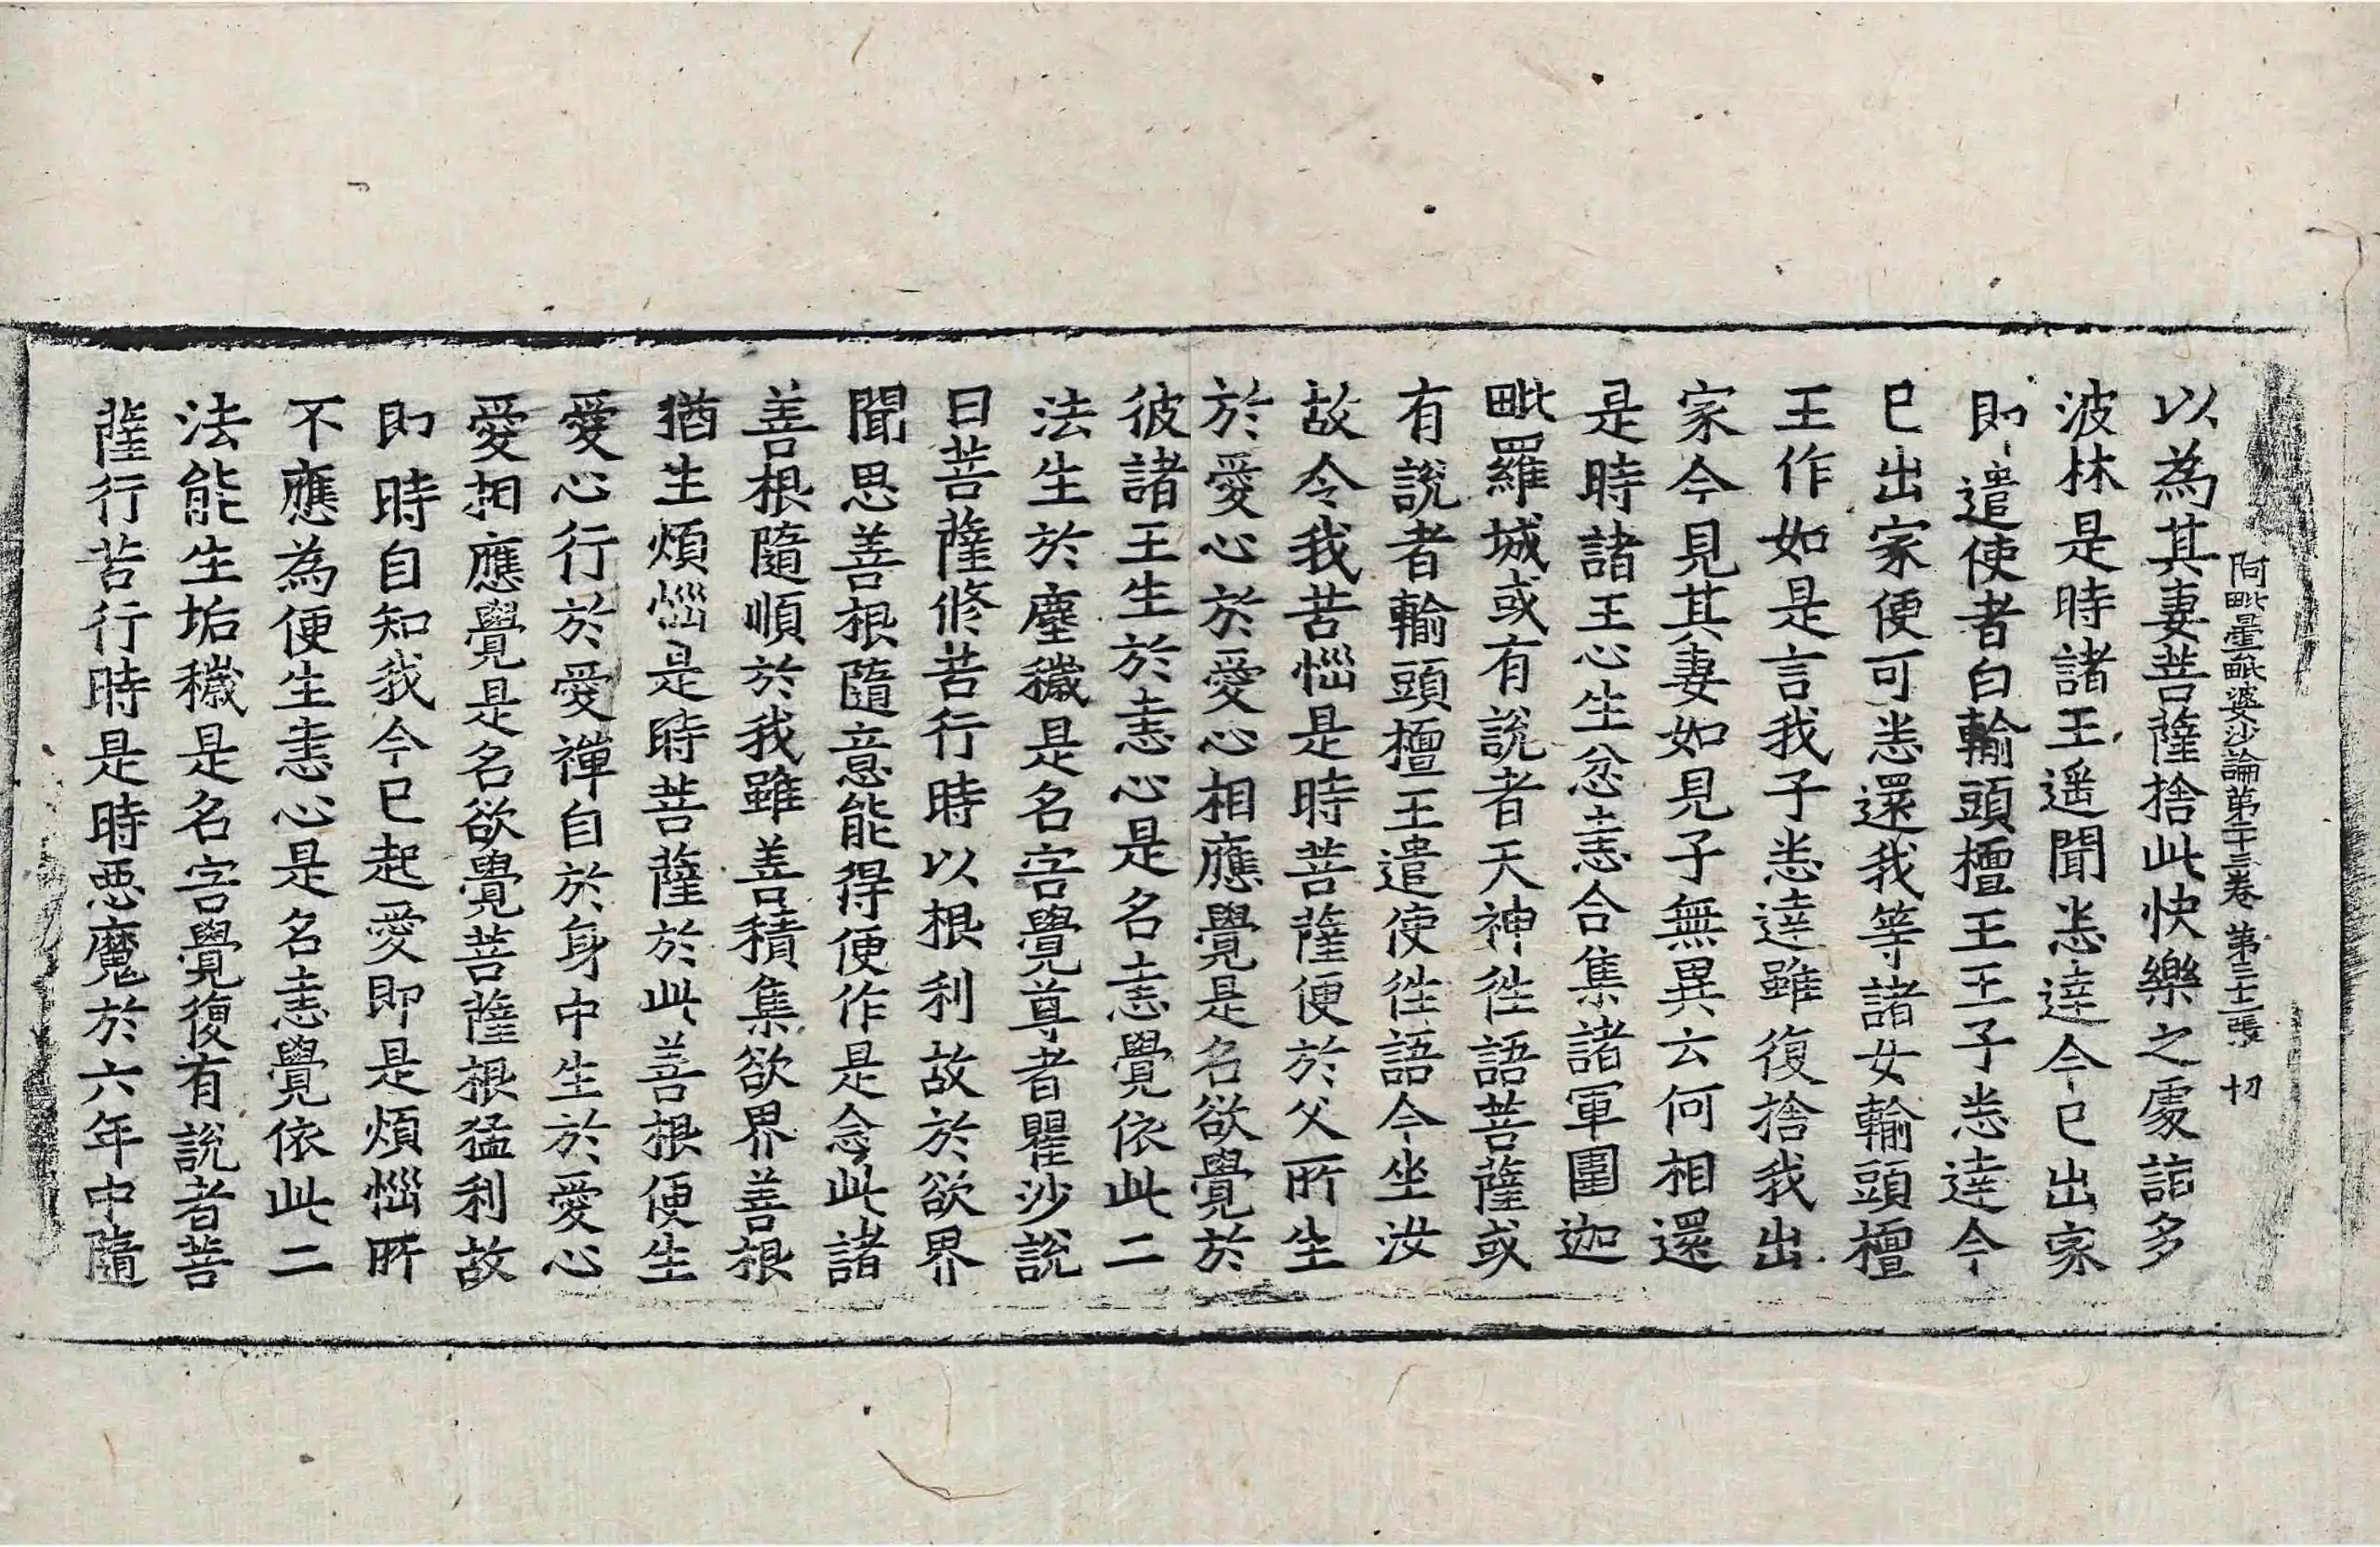 阿毗曇毗婆沙論第二十三卷 第三十二張 切
以為其妻菩薩捨此快樂之處詣多
波林是時諸王遥聞悉達今已出家
即遣使者白輸頭檀王王子悉達今
已出家便可悉還我等諸女輸頭檀
王作如是言我子悉達雖復捨我出
家今見其妻如見子無異云何相還
是時諸王心生忿恚合集諸軍圍迦
毗羅城或有說者天神徃語菩薩或
有說者輸頭檀王遣使徃語今坐汝
故令我苦惱是時菩薩便於父所生
於愛心於愛心相應覺是名欲覺於
彼諸王生於恚心是名恚覺依此二
法生於塵穢是名害覺尊者瞿沙說
曰菩薩修苦行時以根利故於欲界
聞思善根隨意能得便作是念此諸
善根隨順於我雖善積集欲界善根
猶生煩惱是時菩薩於此善根便生
愛心行於愛禪自於身中生於愛心
愛相應覺是名欲覺菩薩根猛利故
即時自知我今已起愛即是煩惱所
不應為便生恚心是名恚覺依此二
法能生垢穢是名害覺復有說者菩
薩行苦行時是時惡魔於六年中隨